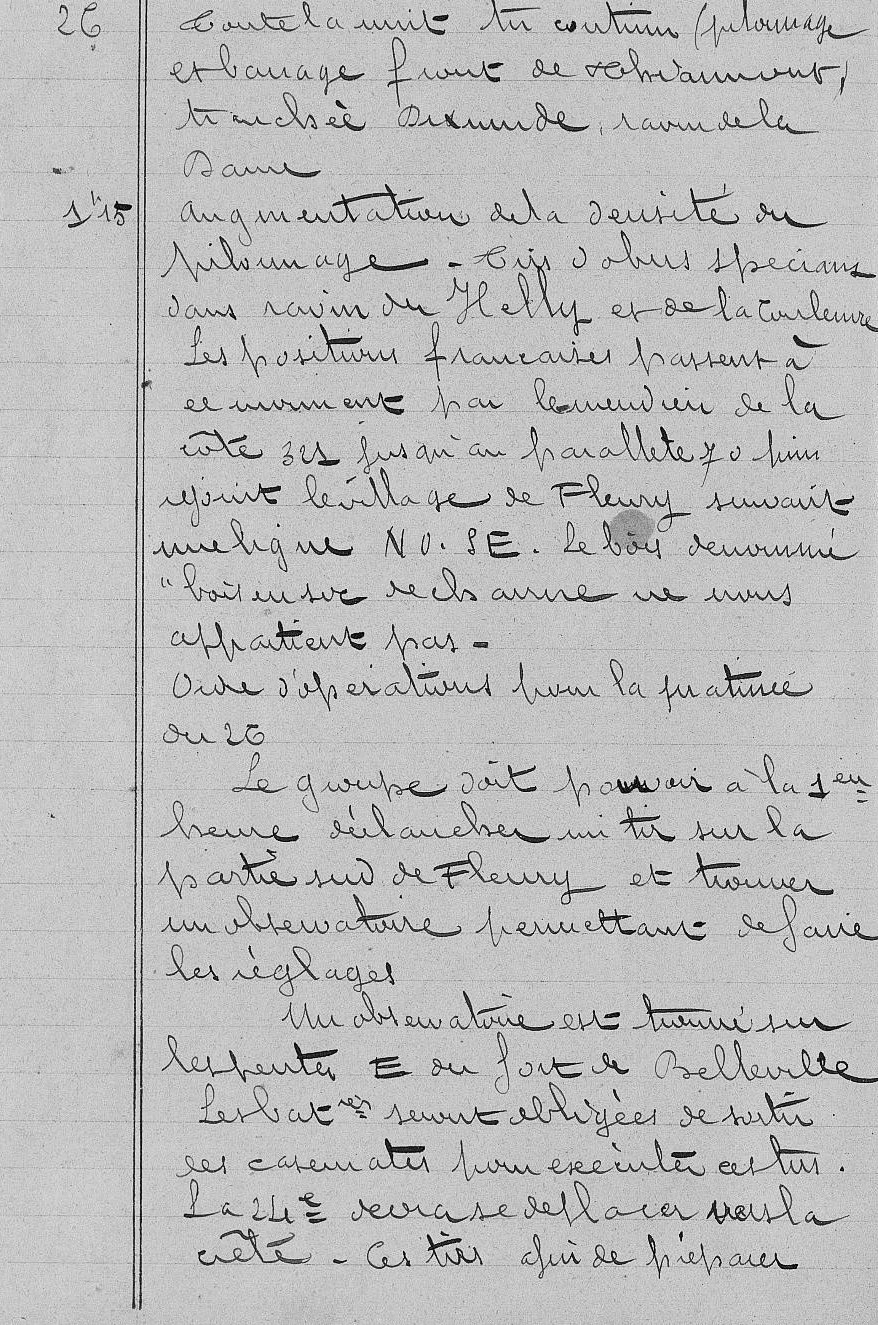 26 Toute la nuit tir continu (pilonnage
et barrage front de Thiaumont,
tranchée Dixmude, ravin de la
Dame
1h15 Augmentation de la densité du
pilonnage - Tirs d'obus spéciaux
dans ravin du Helly et de la Couleuvre
Les positions françaises passent à
ce moment par le méridien de la
côte 321 jusqu'au parallele 70 puis
rejoint le village de Fleury suivant
une ligne NO. SE. Le bois denommé
"bois en soc de charrue ne nous
appartient pas -
Ordre d'opérations pour la matinée
du 26
Le groupe doit pouvoir à la 1ère
heure déclancher un tir sur la
partie sud de Fleury et trouver
un observatoire permettant de faire
les réglages
Un observatoire est trouvé sur
les pentes E du fort de Belleville
Les batries seront obligées de sortir
des casemates pour exécuter ces tirs.
La 24e devra se déplacer vers la
crête - Ces tirs afin de préparer